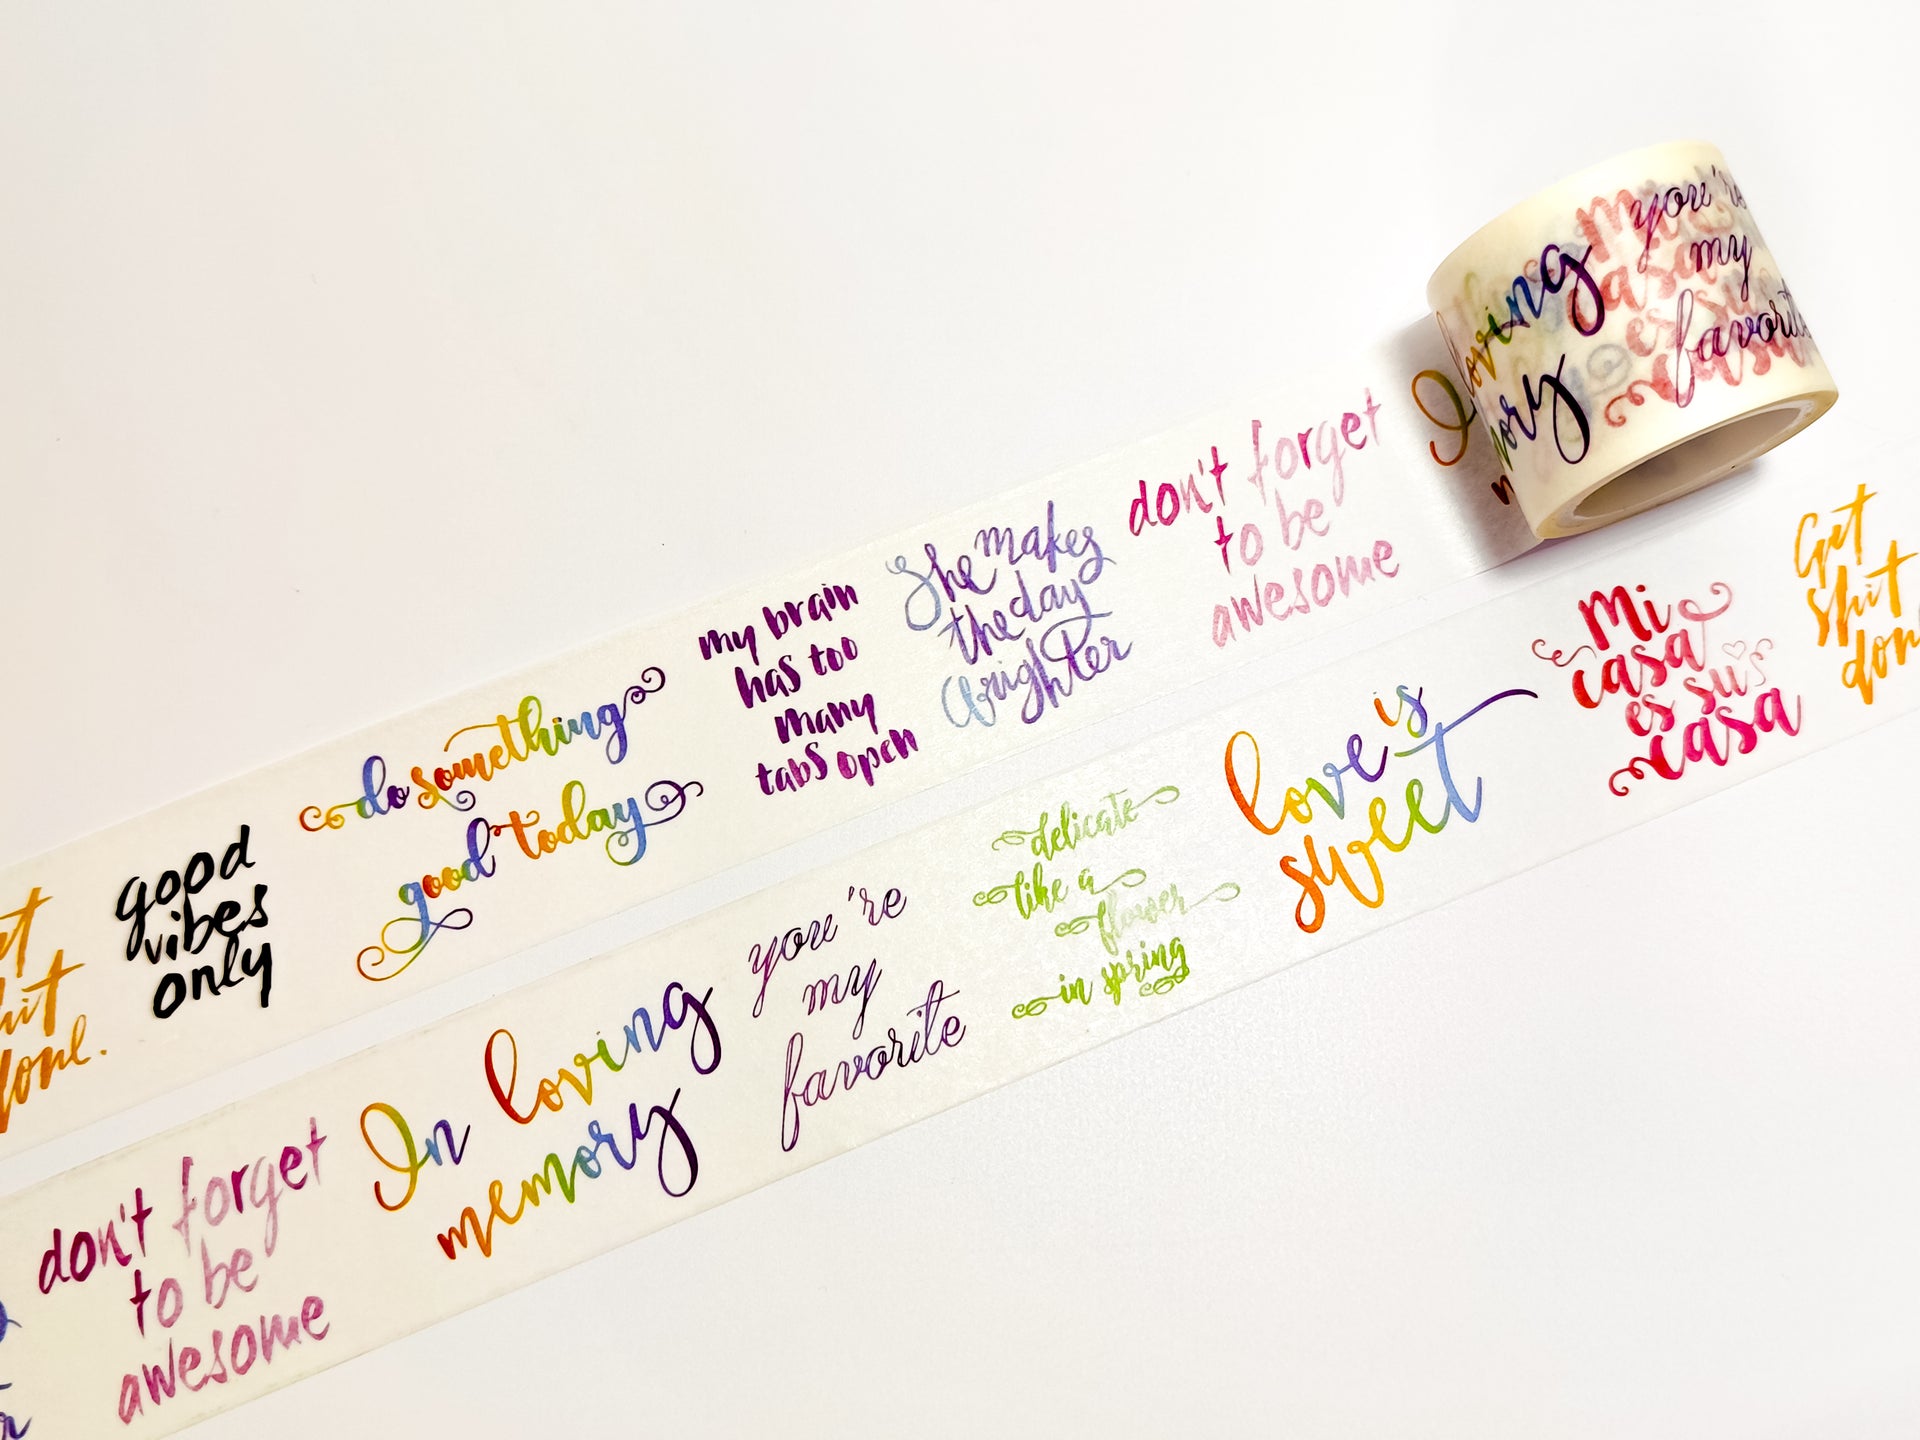 good
vibes
only
do something
good today
my brain
has too
many
tabs open
She makes
the day
brighter
don't forget
to be
awesome
loving
you're
my
Mi
casa
es su
casa
don't forget
to be
awesome
In loving
memory
you're
my
favorite
delicate
like a
flower
in spring
love is
sweet
Mi
casa
es su
casa
Get
shit